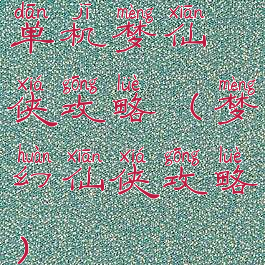 dān jī mèng xiān
单机梦仙
xiá gōng lüè mèng
侠攻略(梦
huàn xiān xiá gōng lüè
幻仙侠攻略
)